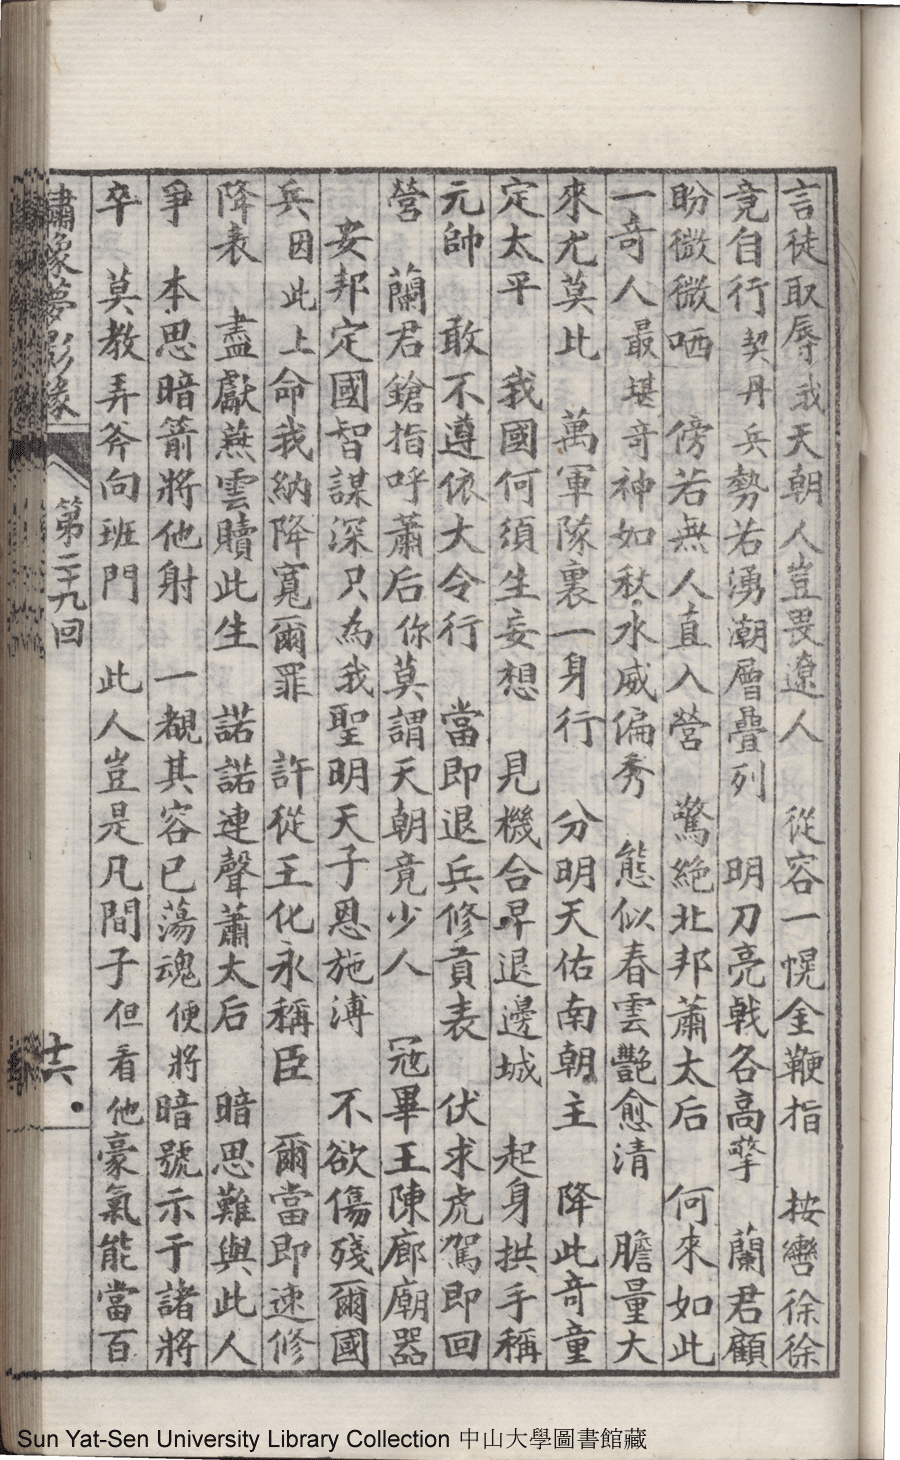 言徒取辱我天朝人豈畏遼人　從容一愰金鞭指　按轡徐徐
竟自行契丹兵勢若湧潮層疊列　明刀亮戟各高擎　蘭君顧
盼微微哂　傍若無人直入營　驚絕北邦蕭太后　何來如此
一奇人最堪奇神如秋水威偏秀　態似春雲艷愈清　膽量大
來尤莫比　萬軍隊裏一身行　分明天佑南朝主　降此奇童
定太平　我國何須生妄想　見機合早退邊城　起身拱手稱
元帥　敢不遵依大令行　當即退兵修貢表　伏求虎駕即回
營　蘭君鎗指呼蕭后你莫謂天朝竟少人　冦畢王陳廊廟器
安邦定國智謀深只為我聖明天子恩施溥　不欲傷殘爾國
兵因此上命我納降寬爾罪　許從王化永稱臣　爾當即速修
降表　盡獻燕雲贖此生　諾諾連聲蕭太后　暗思難與此人
爭　本思暗箭將他射　一覩其容已蕩魂便將暗號示于諸將
卒　莫教弄斧向班門　此人豈是凡間子但看他豪氣能當百
繡像夢影緣　第二十九回　十六
Sun Yat-Sen University Library Collection 中山大學圖書館藏